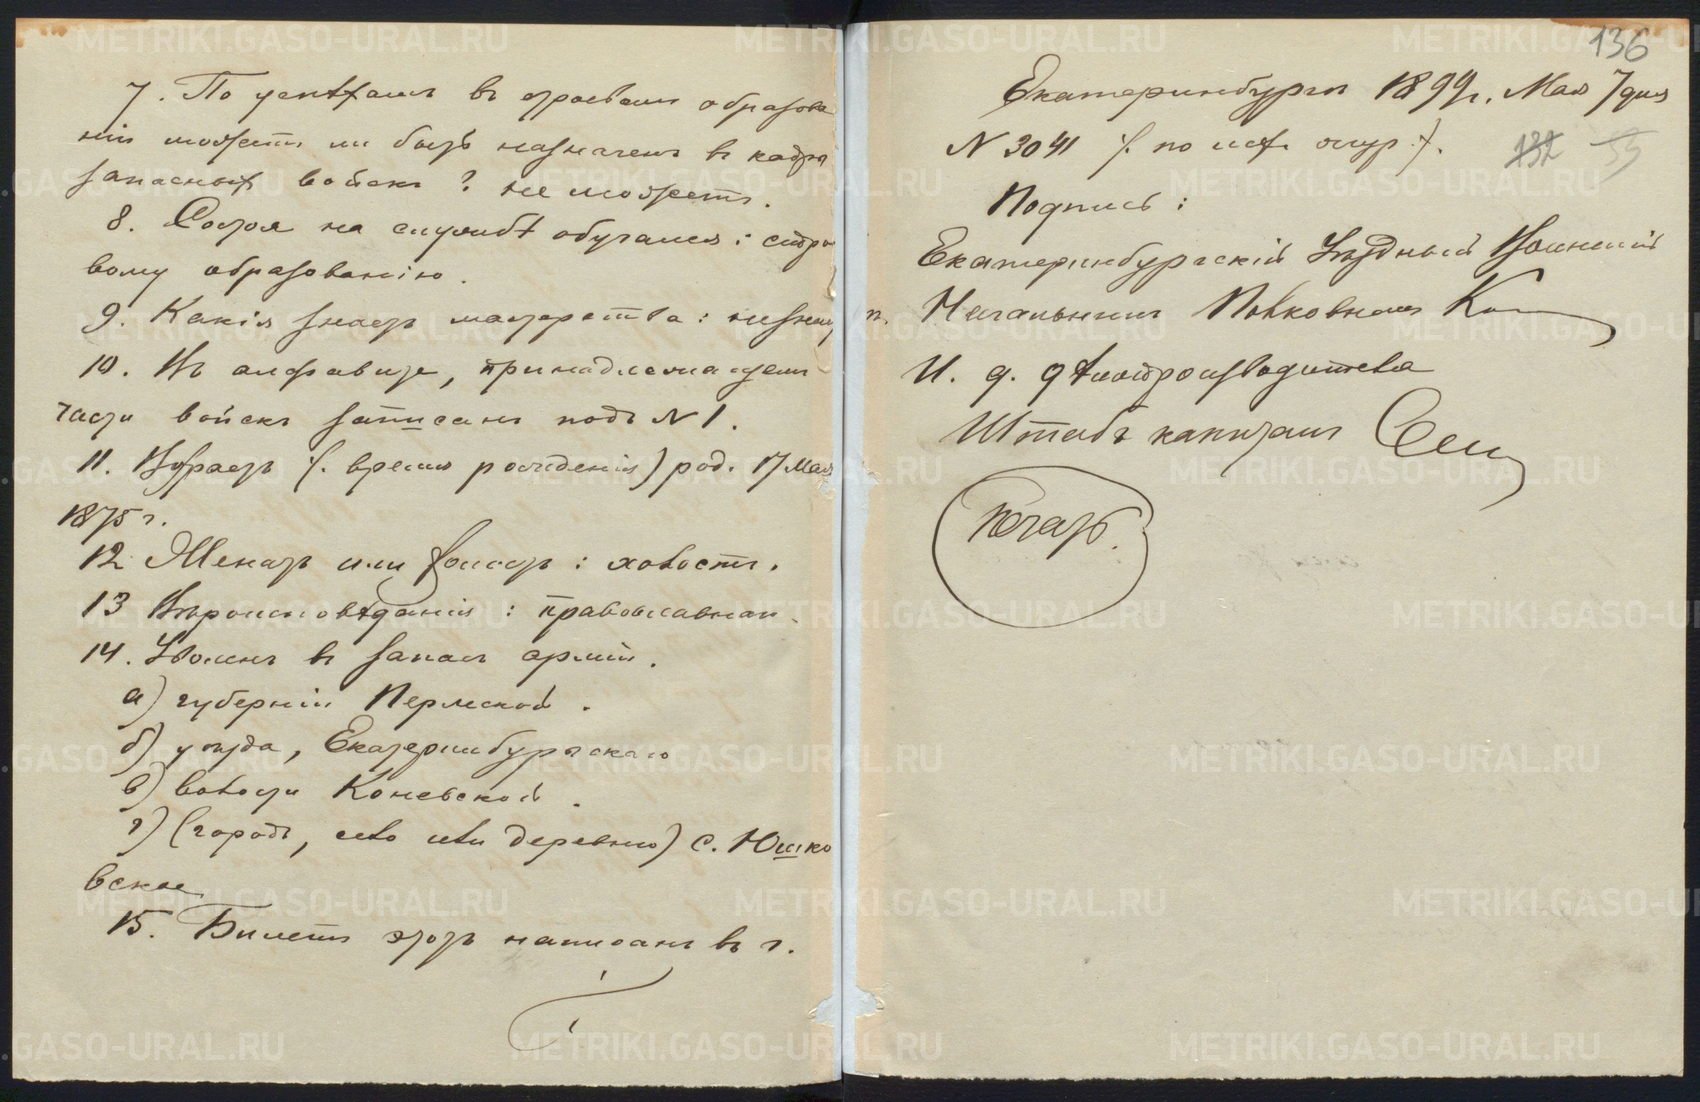 7. По успѣхамъ въ строевомъ образова
ніи можетъ ли быть назначенъ въ кадры
запасныхъ войскъ? не можетъ.
8. Состоя на службѣ обучался: строе
вому образованію.
9. Какія знаетъ мастерства: не знаетъ
10. Въ алфавитѣ, принадлежащемъ
части войскъ записанъ подъ № 1.
11. Возрастъ (время рожденія) род. 17 Мая
1875 г.
12 Женатъ или холостъ: холостъ.
13 Вѣроисповѣданія: православнаго
14. Уволенъ въ запасъ арміи.
а) губерніи Пермской.
б) уѣзда, Екатеринбургскаго
в) волости Коневской.
г) (городъ, село или деревню) с. Юшко
вское
15. Билетъ этотъ написанъ въ г.
136
Екатеринбургѣ 1899 г. Мая 7 дня
№ 3041 (по исх. журн.).
132 55
Подпись:
Екатеринбургскій Уѣздный Воинскій
п. Начальникъ Полковникъ
И. д. дѣлопроизводителя
Штабсъ капитанъ
Печать.
METRIKI.GASO-URAL.RU